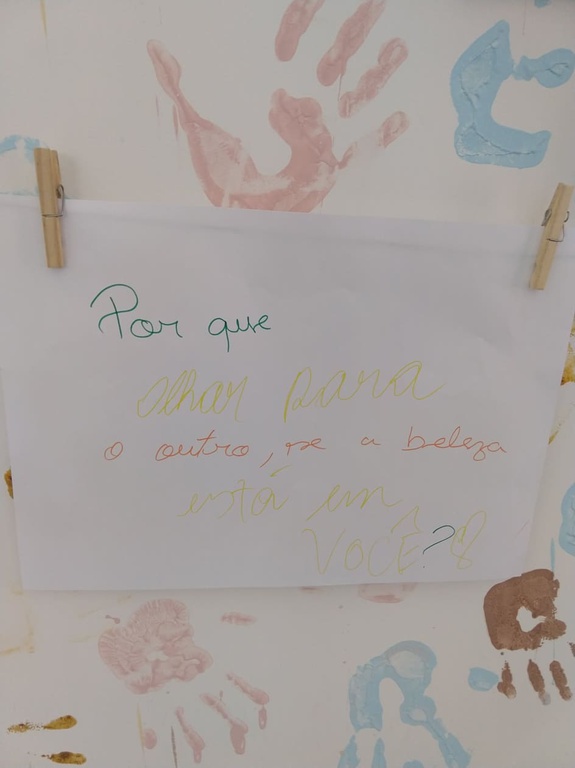 Por que
olhar para
o outro, se a beleza
está em
VOCÊ?